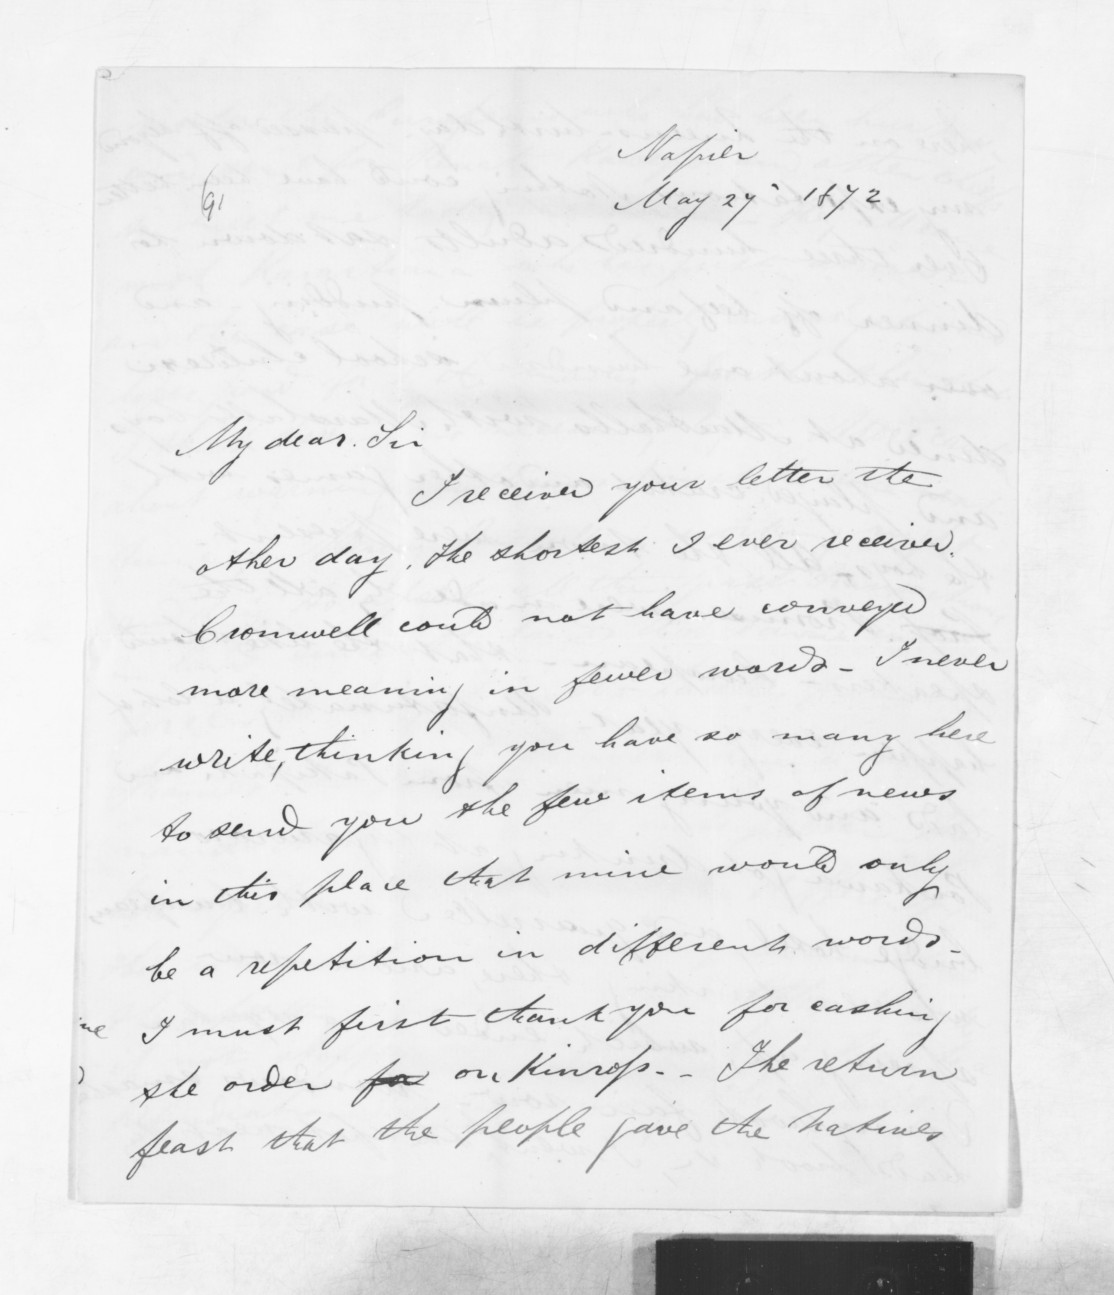 Napier
May 27 1872
91
My dear Sir
I received your letter the
other day, the shortest I ever received.
Cromwell could not have conveyed
more meaning in fewer words - I never
write, thinking you have so many here
to send you the few items of news
in this place that mine would only
be a repetition in different words -
I must first thank you for cashing
the order for on Kinross - - The return
feast that the people gave the Natives